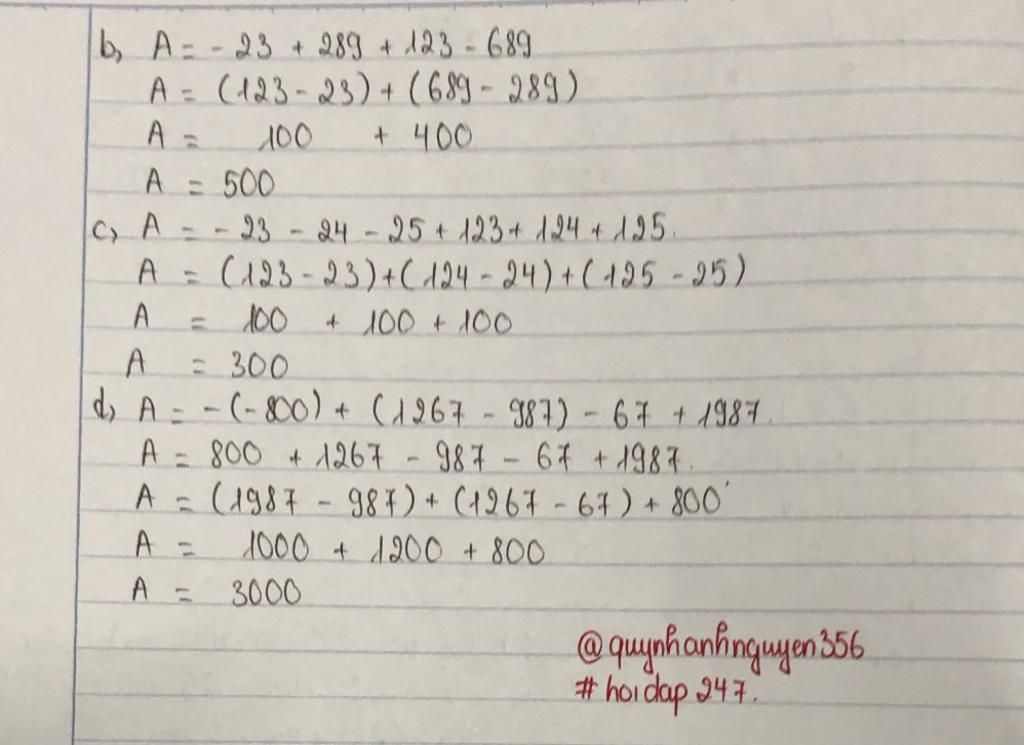 b, A = - 23 + 289 + 123 - 689
A = (123 - 23) + (689 - 289)
A = 100 + 400
A = 500
c, A = - 23 - 24 - 25 + 123 + 124 + 125.
A = (123 - 23) + (124 - 24) + (125 - 25)
A = 100 + 100 + 100
A = 300
d, A = - (-800) + (1267 - 987) - 67 + 1987.
A = 800 + 1267 - 987 - 67 + 1987.
A = (1987 - 987) + (1267 - 67) + 800
A = 1000 + 1200 + 800
A = 3000
@quynhanhnguyen356
# hoidap 247.